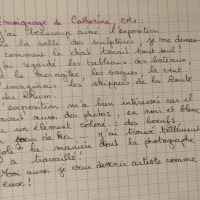 Témoignage de Catherine, CM1
J'ai beaucoup aimé l'exposition.
Dans la salle des sculptures, je me demandais
comment le chat tenait tout seul !
J'ai regardé les tableaux des bateaux,
et la mer agitée, les vagues, le vent
J'imaginais les skippers de la Route
du Rhum.
L'exposition m'a bien intéressée car il
y avait aussi des photos, en noir et blanc
un élément coloré : des bœufs,
y'ai trouvé tellement
la manière dont la photographe
a travaillé !
Moi aussi je veux devenir artiste comme